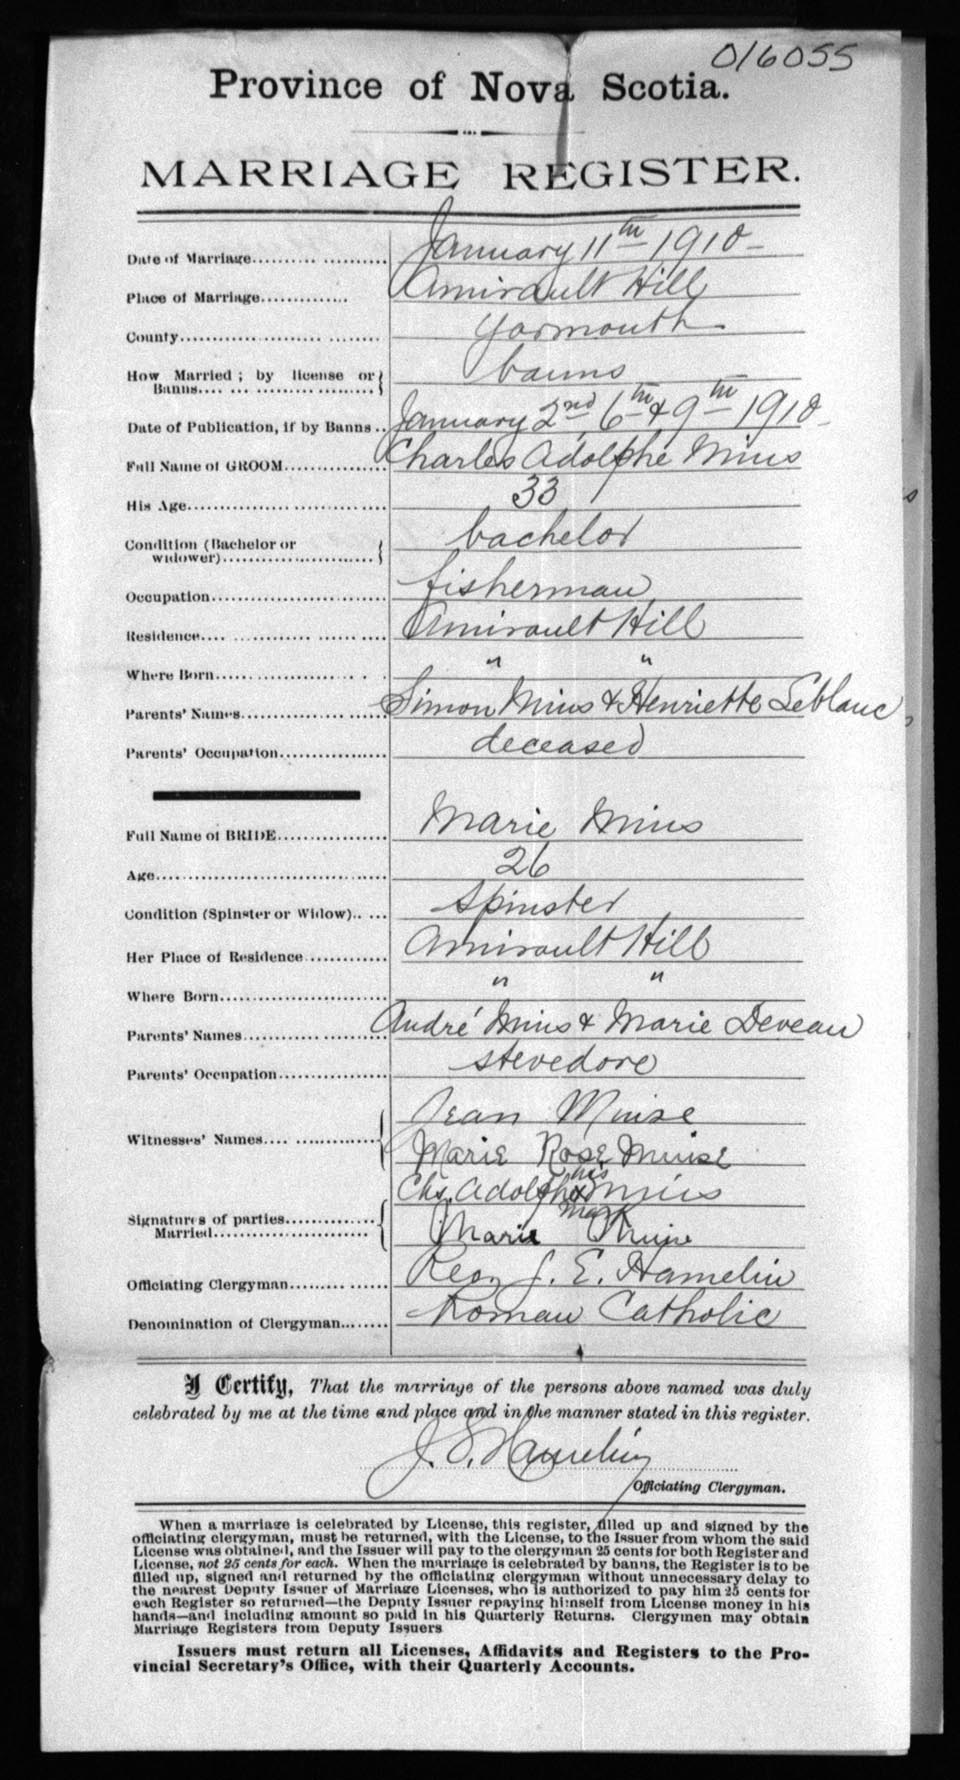 016055
Province of Nova Scotia.
MARRIAGE REGISTER.
Date of Marriage.................. January 11th 1910
Place of Marriage.............. Amirault Hill
County.............................. Yarmouth
How Married ; by license or Banns.................... banns
Date of Publication, if by Banns .. January 2nd, 6th & 9th 1910
Full Name of GROOM................ Charles Adolphe Mius
His Age............................... 33
Condition (Bachelor or widower)....................... bachelor
Occupation............................ fisherman
Residence.... ............... ...... .... Amirault Hill
Where Born....................... . . " "
Parents' Names....................... Simon Mius & Henriette Leblanc
Parents' Occupation................ deceased
Full Name of BRIDE................ Marie Mius
Age.................................... 26
Condition (Spinster or Widow).. .... spinster
Her Place of Residence............ Amirault Hill
Where Born......................... " "
Parents' Names...................... André Mius & Marie Deveau
Parents' Occupation................ stevedore
Witnesses' Names.... ............. Jean Muise
Marie Rose Muise
Chs. Adolphe his x mark Mius
Signatures of parties Married.............. Marie Muise
Officiating Clergyman.............. J. E. Hamelin
Denomination of Clergyman....... Roman Catholic
I Certify, That the marriage of the persons above named was duly
celebrated by me at the time and place and in the manner stated in this register.
J. E. Hamelin
Officiating Clergyman.
When a marriage is celebrated by License, this register, filled up and signed by the
officiating clergyman, must be returned, with the License, to the Issuer from whom the said
License was obtained, and the Issuer will pay to the clergyman 25 cents for both Register and
License, not 25 cents for each. When the marriage is celebrated by banns, the Register is to be
filled up, signed and returned by the officiating clergyman without unnecessary delay to
the nearest Deputy Issuer of Marriage Licenses, who is authorized to pay him 25 cents for
each Register so returned—the Deputy Issuer repaying himself from License money in his
hands—and including amount so paid in his Quarterly Returns. Clergymen may obtain
Marriage Registers from Deputy Issuers
Issuers must return all Licenses, Affidavits and Registers to the Pro-
vincial Secretary's Office, with their Quarterly Accounts.